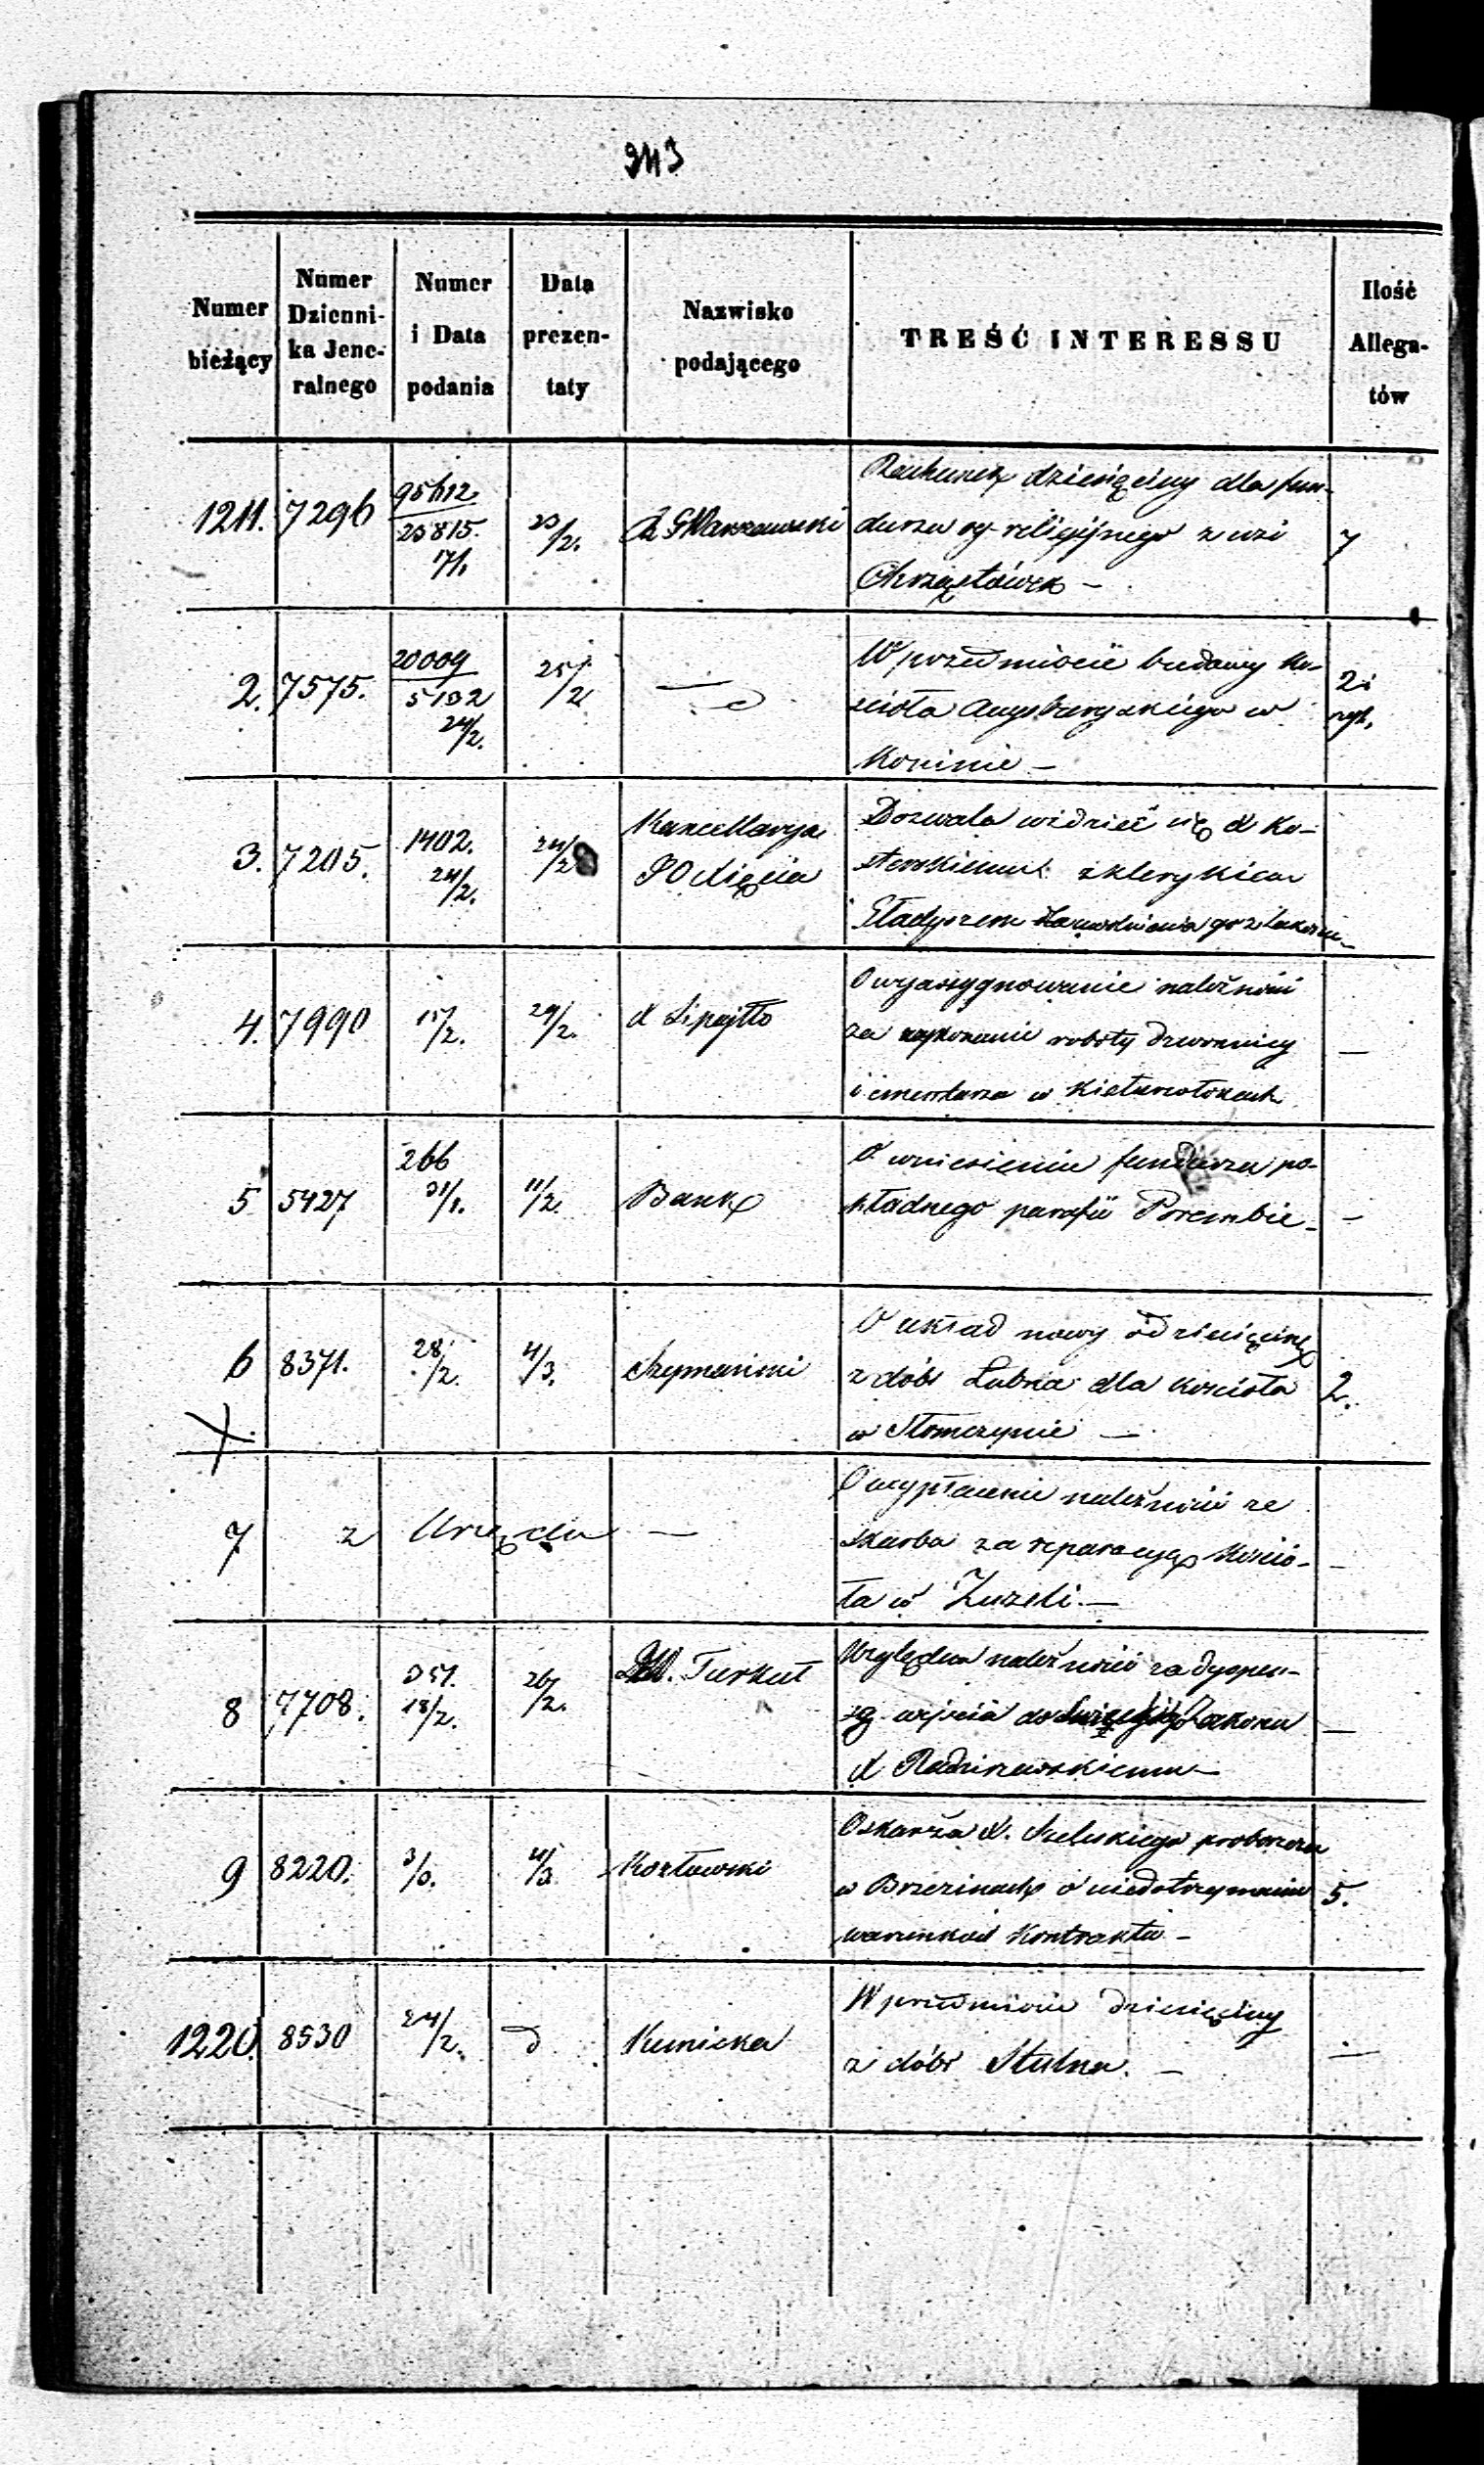 943
Numer bieżący
Numer Dzienni-ka Jene-ralnego
Numer i Data podania
Data prezen-taty
Nazwisko podającego
TREŚĆ INTERESSU
Ilość Allega-tów
1211. 7296 95612/23815. 7/1. 23/2. Rachunek dziesięciny dla fun-
duszu og religijnego z wsi 7
Chrząstówek –
2. 7575. 20009/5132 24/2. 25/2 W przedmiocie budowy Ko-
ścioła Augsburgskiego w 2
Koninie –
3. 7205. 1402. 24/2. 24/2 Kancellarya Dozwala widzieć się X Ko-
z klerykiem
4. 7990 15/2. 29/2. X Lipejtło O wyassygnowanie należności
za wykonanie roboty dzwonnicy –
i cmentarza w Kiełtarwołokach
5 5427 266 31/1. 11/2. Bank O wniesieniu funduszu po-
kładnego parafii Porembie –
6 8371. 28/2. 4/3. Szymański O układ nowy o dziesięcinę
z dóbr Łubna dla Kościoła 2.
w Słomczynie –
7 z Urzędu – O wypłacenie należności ze
skarbu za reparacyę Kościo- –
ła w Zuzeli. –
8 7708. 351. 18/2. 26/2. Turkuł Względem należności za dyspen-
sę wejścia do Zakonu –
X Radziszewskiemu –
9 8220. 3/3. 4/3 Kozłowski Oskarża X. proboszcza
w Brzezinach o niedotrzymanie 5.
warunków Kontraktu –
1220. 8530 24/2. d Kunicka W przedmiocie dziesięciny
z dóbr Stulna. – –